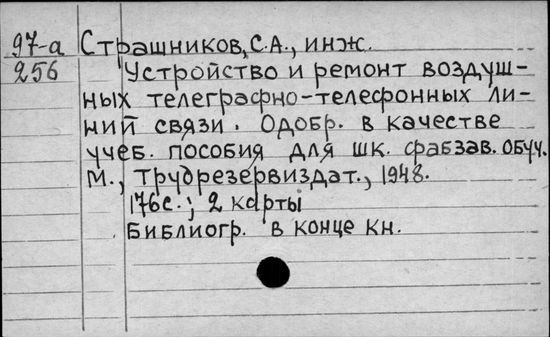 97-а Страшников, С.А., инж.
256 Устройство и ремонт воздуш-
ных телеграфно-телефонных ли-
ний связи. Одобр. в качестве
учеб. пособия для шк. фабзав. обуч.
М., Трудрезервиздат., 1948.
176с.; 2 карты
Библиогр. в конце кн.